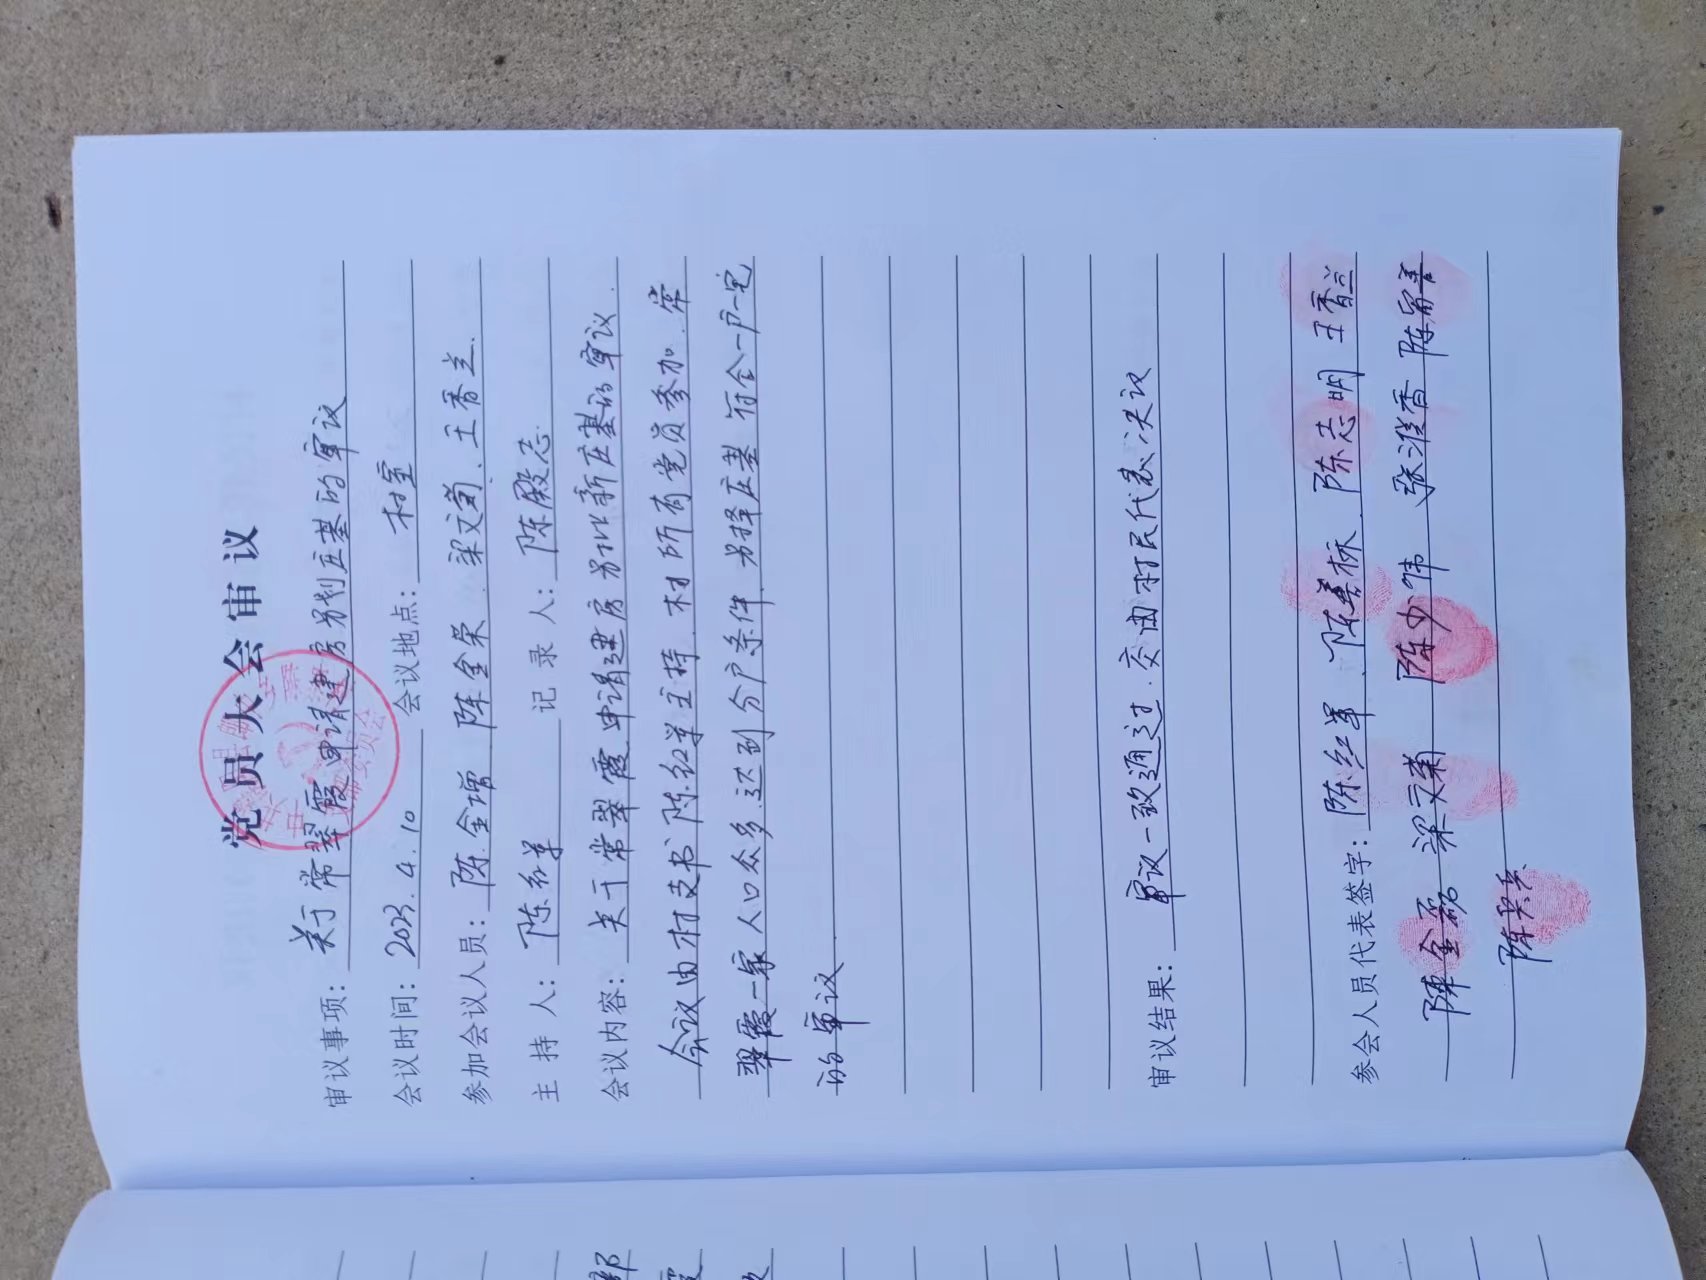 党员大会审议
审议事项：关于常翠霞申请建房另划庄基的审议
会议时间：2023.4.10 会议地点：村室
参加会议人员：陈金增 陈全荣 梁文菊、王香兰.
主持人：陈红军 记录人：陈殿志
会议内容：关于常翠霞申请建房另批新庄基的审议.
会议由村支书陈红军主持.村所有党员参加.常
翠霞一家人口众多.达到分户条件.另择庄基符合一户一宅
的审议
审议结果：审议一致通过.交由村民代表决议
参会人员代表签字：陈红军 陈志明 王香兰
陈金 梁文菊 陈少伟 香 陈
陈